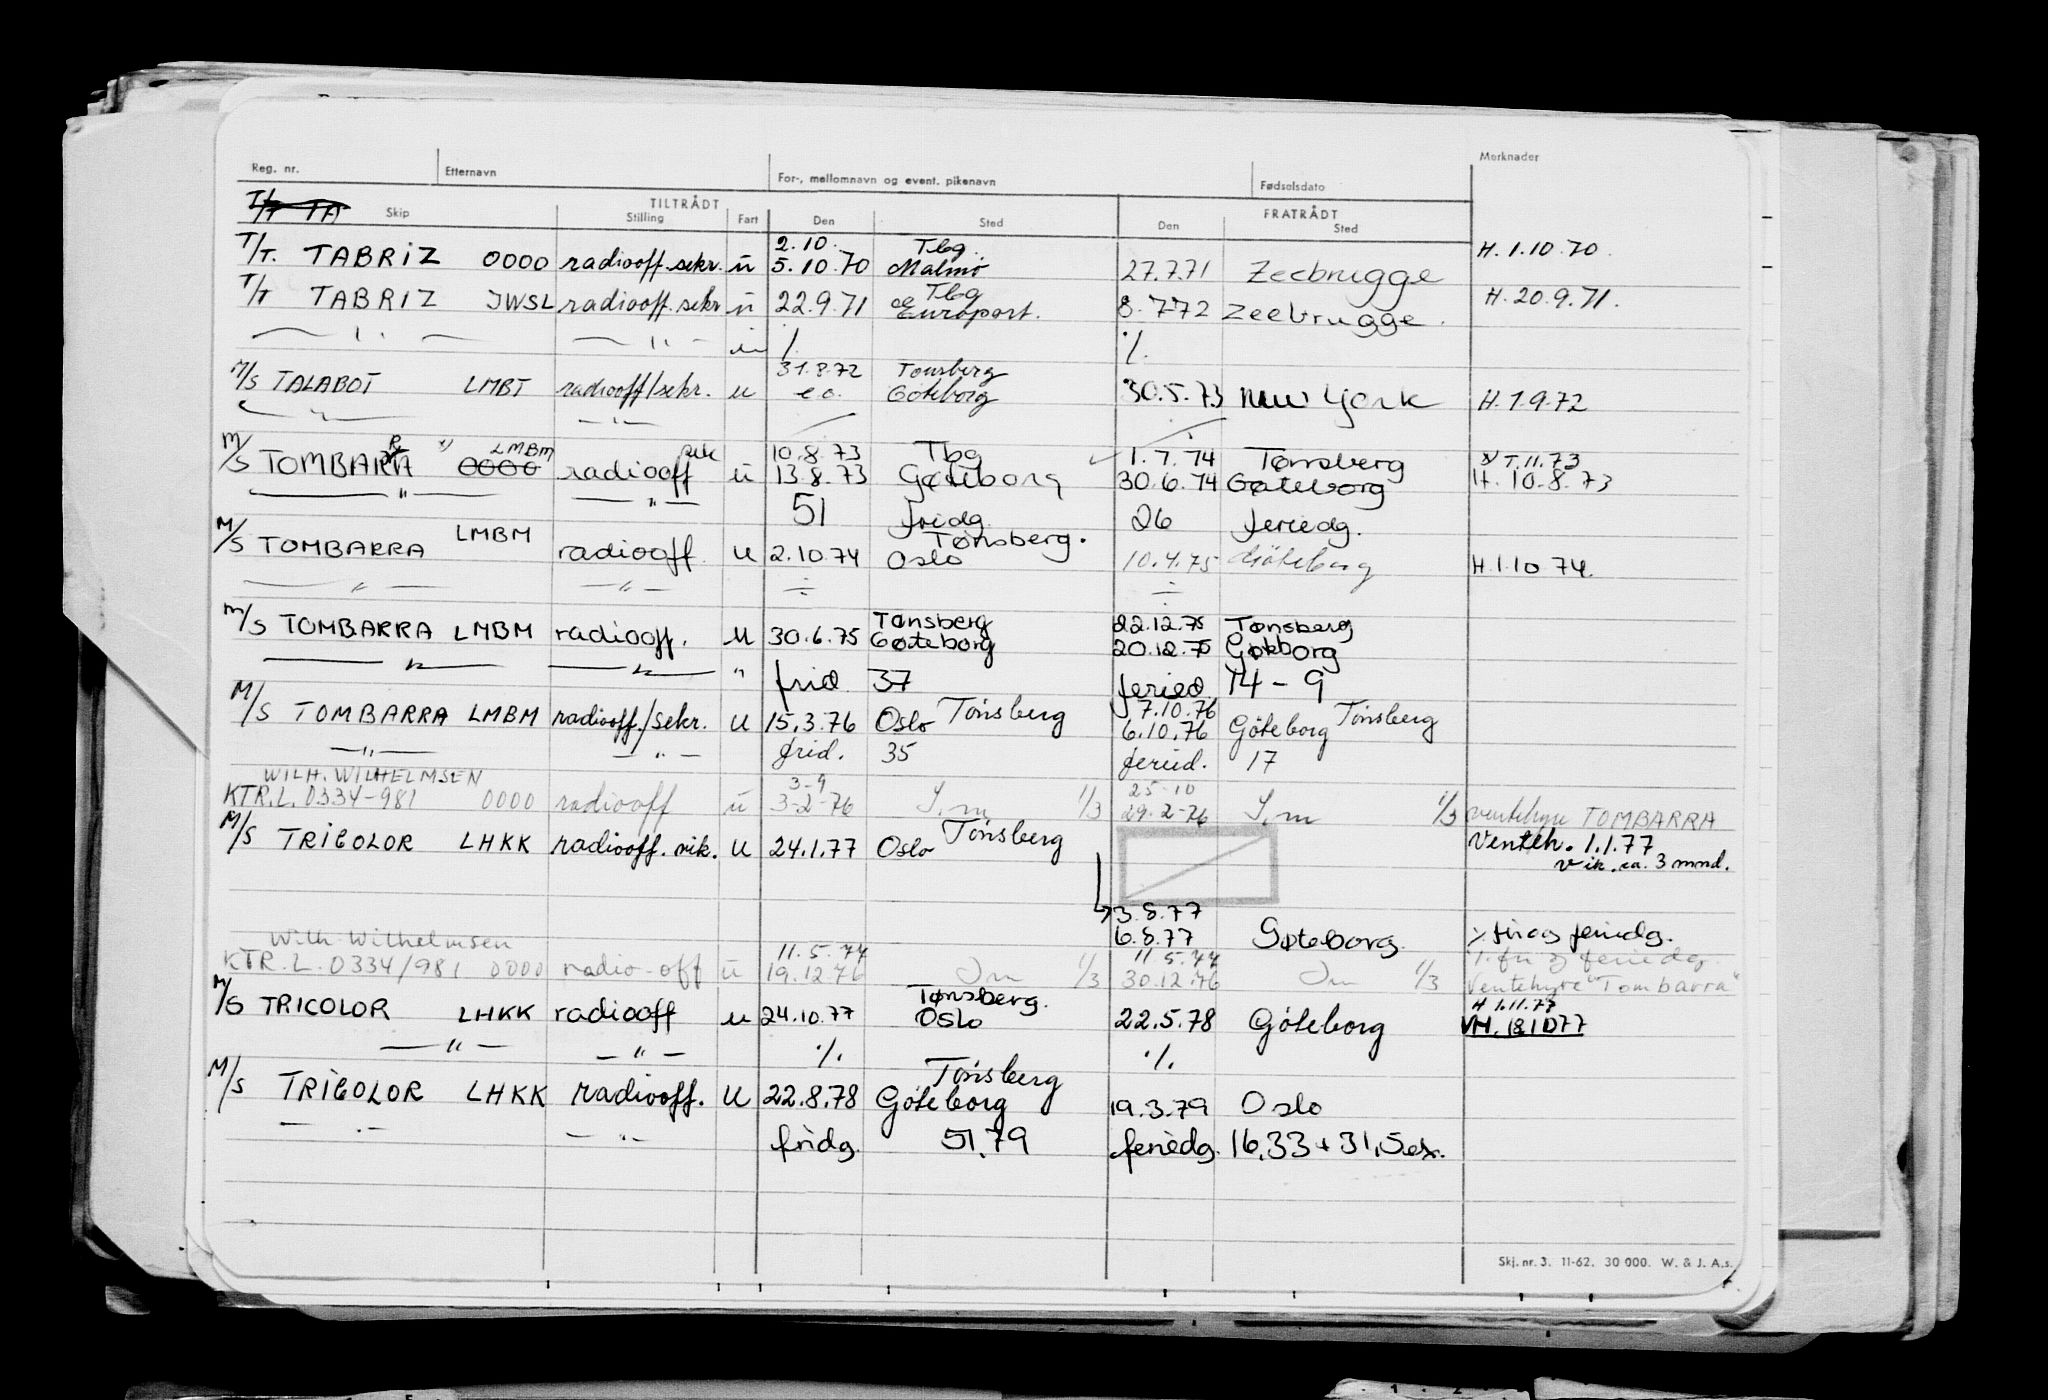 Reg. nr. Etternavn For-, mellomnavn og event. pikenavn Fødselsdato Merknader
T/T TA
TILTRÅDT FRATRÅDT
Skip Stilling Fart Den Sted Den Sted
2.10. Tbg. H. 1.10.70
T/T. TABRIZ 0000 radiooff.sekr. u 5.10.70 Malmö 27.7.71 Zeebrugge
Tbg H. 20.9.71.
T/T TABRIZ JWSL radiooff.sekr u 22.9.71 Europort. 8.772 Zeebrugge.
— " — — " — ./. ./.
31.8.72 Tønsberg
M/S TALABOT LMBT radiooff/sekr. u e.o. Göteborg 30.5.73 New York H. 1.9.72
— " — — " —
LMBM sek 10.8.73 Tbg 1.7.74 Tønsberg x/ 1.11.73
M/S TOMBARRA x) 0000 radiooff u 13.8.73 Gøteborg 30.6.74 Gøteborg H. 10.8.73
— " — — " — 51 fridg. 26 feriedg.
Tønsberg.
M/S TOMBARRA LMBM radiooff. u 2.10.74 Oslo 10.4.75 Göteborg H.1.10 74.
— " — — " — ÷ ÷
Tønsberg 22.12.75 Tønsberg
M/S TOMBARRA LMBM radiooff. u 30.6.75 Gøteborg 20.12.75 Gøteborg
— " — — " — " frid. 37 feried. 14 - 9
7.10.76
M/S TOMBARRA LMBM radiooff./sekr. u 15.3.76 Oslo Tönsberg 6.10.76 Göteborg Tönsberg
— " — — " — frid. 35 feried. 17
WILH. WILHELMSEN 3-9 25-10
KTR.L. 0334-981 0000 radiooff u 3-2-76 1/3 29.2-76 1/3 Ventehyre TOMBARRA
M/S TRICOLOR LHKK radiooff. vik. u 24.1.77 Oslo Tönsberg Venteh. 1.1.77
vik. ca. 3 mnd.
3.8.77
6.8.77 Gøteborg. ./. fri og feriedg.
Wilh. Wilhelmsen 11.5.77 11 5.77 ./. fri og feriedg.
KTR.L. 0334/981 0000 radio-off u 19.12.76 1/3 30.12.76 1/3 Ventehyre "Tombarra"
Tønsberg. H 1.11.77
M/S TRICOLOR LHKK radiooff u 24.10.77 Oslo 22.5.78 Göteborg VH. 181077
— " — — " — ./. ./.
Tönsberg
M/S TRICOLOR LHKK radiooff. u 22.8.78 Göteborg 19.3.79 Oslo
— " — — " — fridg. 51,79 feriedg. 16,33 + 31,5 ex.
Skj. nr. 3. 11-62. 30 000. W. & J. A.s.